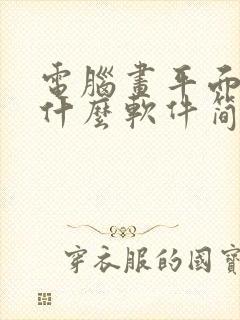 電腦畫平面
什麼軟件簡
穿衣服的國寶